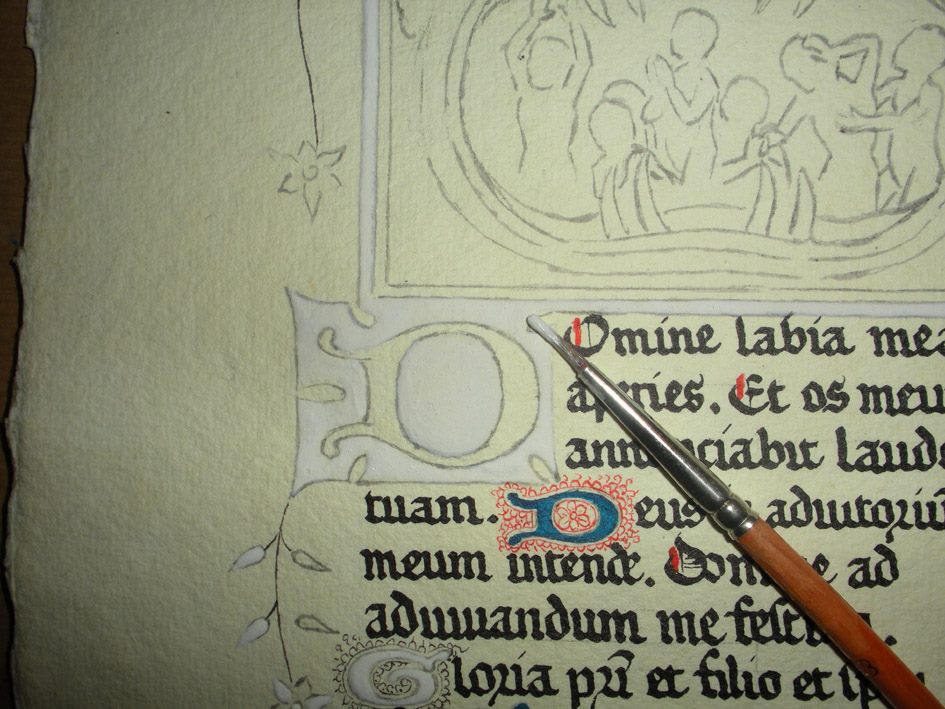 DOmine labia mea
aperies. Et os meu
annunciabit laude
tuam. Deus in adiutoriū
meum intende. Domine ad
adiuuandum me festina.
Gloria pr̄i et filio et